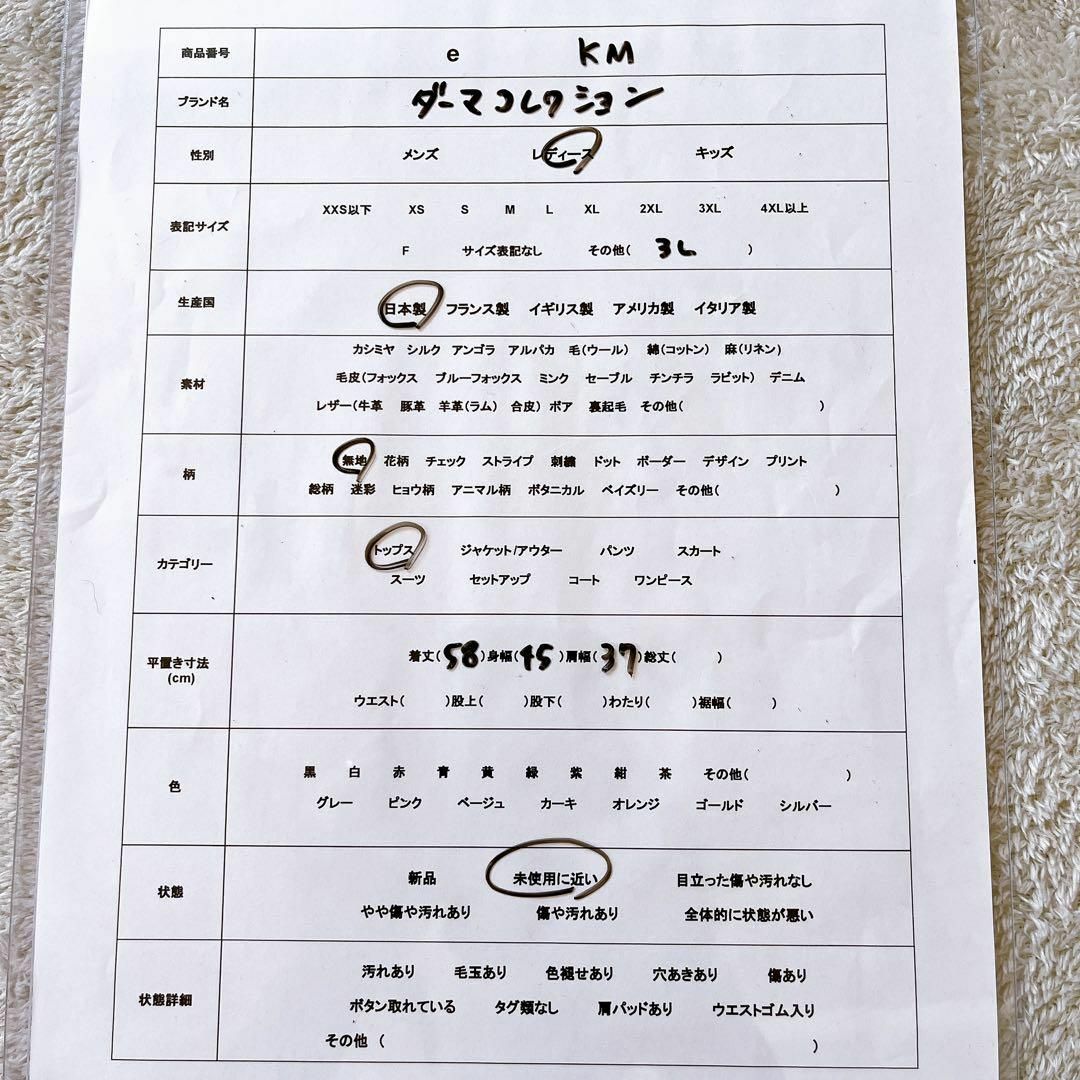 商品番号 e KM
ブランド名 ダーマコレクション
性別 メンズ レディース キッズ
XXS以下 XS S M L XL 2XL 3XL 4XL以上
表記サイズ
F サイズ表記なし その他( 3L )
生産国 日本製 フランス製 イギリス製 アメリカ製 イタリア製
カシミヤ シルク アンゴラ アルパカ 毛(ウール) 綿(コットン) 麻(リネン)
素材 毛皮(フォックス ブルーフォックス ミンク セーブル チンチラ ラビット) デニム
レザー(牛革 豚革 羊革(ラム) 合皮) ボア 裏起毛 その他( )
柄 無地 花柄 チェック ストライプ 刺繍 ドット ボーダー デザイン プリント
総柄 迷彩 ヒョウ柄 アニマル柄 ボタニカル ペイズリー その他( )
カテゴリー トップス ジャケット/アウター パンツ スカート
スーツ セットアップ コート ワンピース
平置き寸法 着丈(58)身幅(45)肩幅(37)総丈( )
(cm)
ウエスト( )股上( )股下( )わたり( )裾幅( )
色 黒 白 赤 青 黄 緑 紫 紺 茶 その他( )
グレー ピンク ベージュ カーキ オレンジ ゴールド シルバー
状態 新品 未使用に近い 目立った傷や汚れなし
やや傷や汚れあり 傷や汚れあり 全体的に状態が悪い
状態詳細 汚れあり 毛玉あり 色褪せあり 穴あきあり 傷あり
ボタン取れている タグ類なし 肩パッドあり ウエストゴム入り
その他 ( )